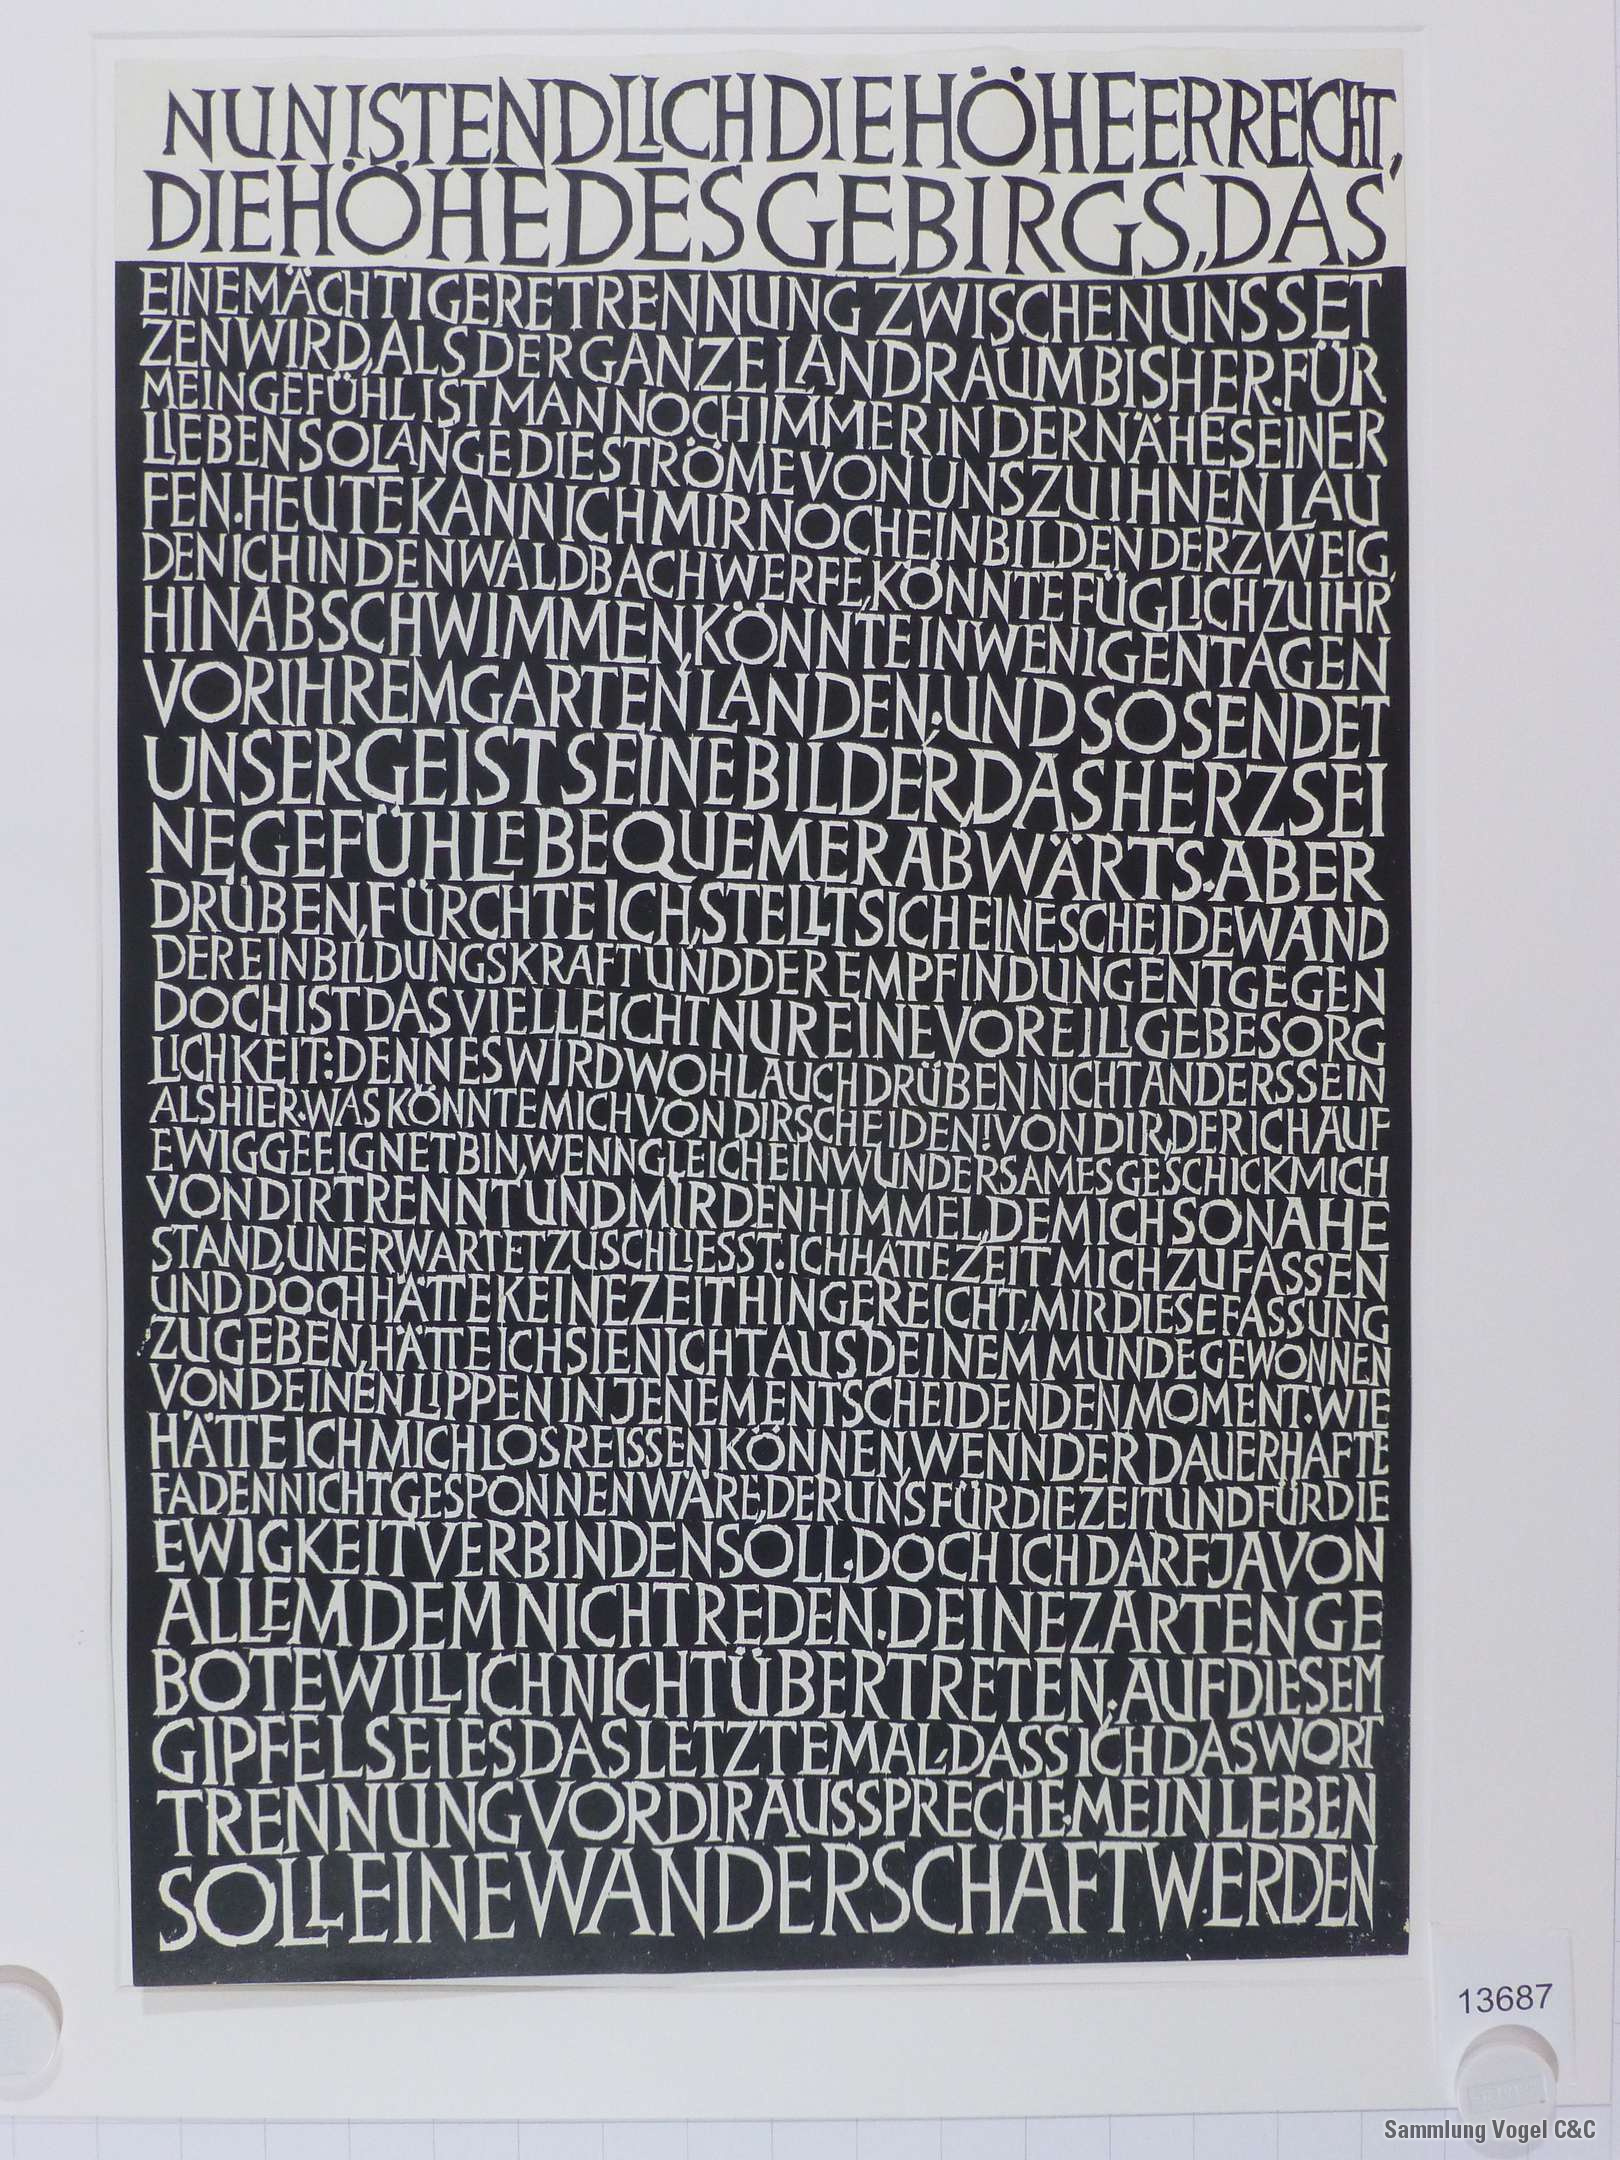 NUN IST ENDLICH DIE HÖHE ERREICHT,
DIE HÖHE DES GEBIRGS, DAS
EINE MÄCHTIGERE TRENNUNG ZWISCHEN UNS SET
ZEN WIRD, ALS DER GANZE LANDRAUM BISHER. FÜR
MEIN GEFÜHL IST MAN NOCH IMMER IN DER NÄHE SEINER
LIEBEN SOLANGE DIE STRÖME VON UNS ZU IHNEN LAU
FEN. HEUTE KANN ICH MIR NOCH EINBILDEN DER ZWEIG,
DEN ICH IN DEN WALDBACH WERFE, KÖNNTE FÜGLICH ZU IHR
HINABSCHWIMMEN, KÖNNTE IN WENIGEN TAGEN
VOR IHREM GARTEN LANDEN; UND SO SENDET
UNSER GEIST SEINE BILDER, DAS HERZ SEI
NE GEFÜHLE BEQUEMER ABWÄRTS. ABER
DRÜBEN, FÜRCHTE ICH, STELLT SICH EINE SCHEIDEWAND
DER EINBILDUNGSKRAFT UND DER EMPFINDUNG ENTGEGEN
DOCH IST DAS VIELLEICHT NUR EINE VOREILIGE BESORG
LICHKEIT: DENN ES WIRD WOHL AUCH DRÜBEN NICHT ANDERS SEIN
ALS HIER. WAS KÖNNTE MICH VON DIR SCHEIDEN! VON DIR, DER ICH AUF
EWIG GEEIGNET BIN, WENN GLEICH EIN WUNDERSAMES GESCHICK MICH
VON DIR TRENNT UND MIR DEN HIMMEL, DEM ICH SO NAHE
STAND, UNERWARTET ZUSCHLIESST. ICH HATTE ZEIT MICH ZU FASSEN
UND DOCH HÄTTE KEINE ZEIT HINGEREICHT, MIR DIESE FASSUNG
ZU GEBEN, HÄTTE ICH SIE NICHT AUS DEINEM MUNDE GEWONNEN
VON DEINEN LIPPEN IN JENEM ENTSCHEIDENDEN MOMENT. WIE
HÄTTE ICH MICH LOSREISSEN KÖNNEN, WENN DER DAUERHAFTE
FADEN NICHT GESPONNEN WÄRE, DER UNS FÜR DIE ZEIT UND FÜR DIE
EWIGKEIT VERBINDEN SOLL. DOCH ICH DARF JA VON
ALLEM DEM NICHT REDEN. DEINE ZARTEN GE
BOTE WILL ICH NICHT ÜBERTRETEN; AUF DIESEM
GIPFEL SEI ES DAS LETZTE MAL, DASS ICH DAS WORT
TRENNUNG VOR DIR AUSSPRECHE. MEIN LEBEN
SOLL EINE WANDERSCHAFT WERDEN
13687
Sammlung Vogel C&C